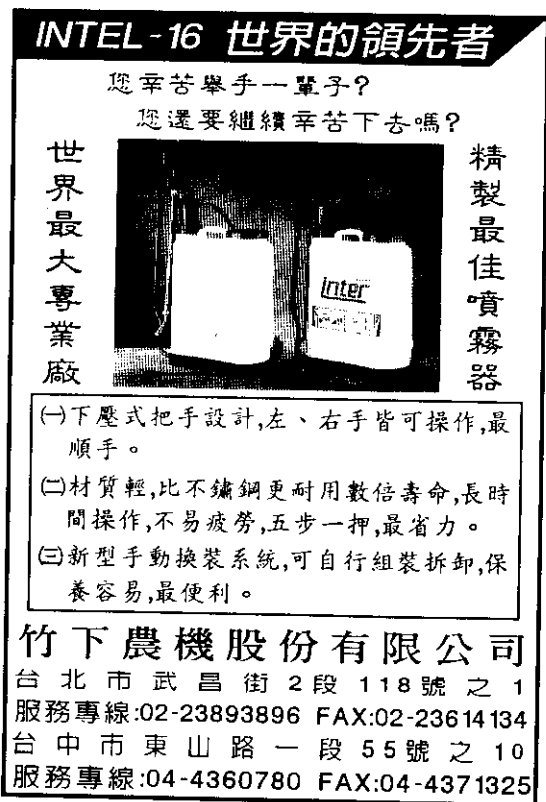 INTEL-16 世界的領先者
您辛苦舉手一輩子?
您還要繼續辛苦下去嗎?
世界最大專業廠
精製最佳噴霧器
inter
㈠下壓式把手設計,左、右手皆可操作,最
順手。
㈡材質輕,比不鏽鋼更耐用數倍壽命,長時
間操作,不易疲勞,五步一押,最省力。
㈢新型手動換裝系統,可自行組裝拆卸,保
養容易,最便利。
竹下農機股份有限公司
台北市武昌街2段118號之1
服務專線:02-23893896 FAX:02-23614134
台中市東山路一段55號之10
服務專線:04-4360780 FAX:04-4371325